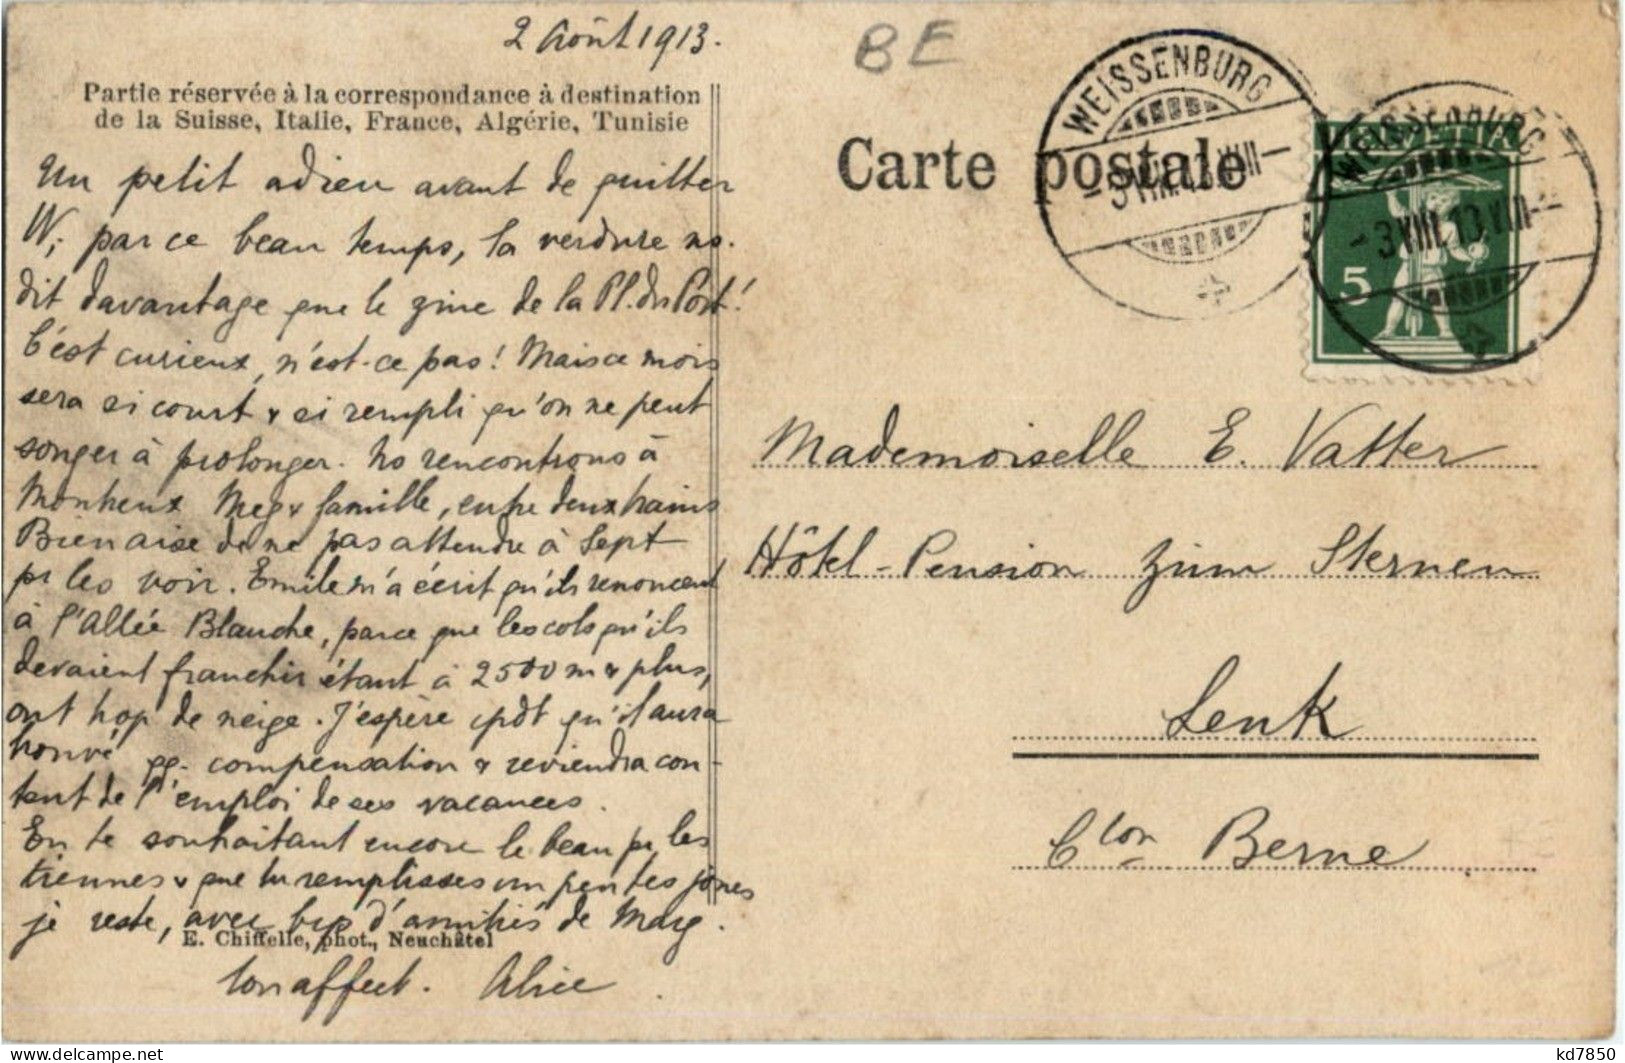 2 Août 1913.
BE
Partie réservée à la correspondance à destination
de la Suisse, Italie, France, Algérie, Tunisie
Carte postale
WEISSENBURG
-3 VIII.13.VIII-
HELVETIA
5
WEISSENBURG
-3 VIII.13.VIII-
Un petit adieu avant de quitter
W, par ce beau temps, la verdure ns.
dit davantage que le de la Pl. du Port!
C'est curieux, n'est-ce pas! Mais ce mois
sera si court & si rempli qu'on ne peut
songer à prolonger. Ns rencontrons à
Montreux Meg & famille, entre deux trains
Bien aise de ne pas attendre à Sept
pr les voir. Emile m'a écrit qu'ils renoncent
à l'Allée Blanche, parce que les cols qu'ils
devaient franchir étant à 2500 m & plus,
ont trop de neige. J'espère cpdt qu'il aura
trouvé qq. compensation & reviendra con-
tent de l'emploi de ses vacances.
En te souhaitant encore le beau pr les
tiennes & que tu remplisses un peu tes joues
je reste, avec bcp d'amitiés de Marg.
E. Chiffelle, phot., Neuchâtel
ton affect. Alice
Mademoiselle E. Vatter
Hôtel-Pension zum Sternen
Lenk
Cton Berne
kd7850